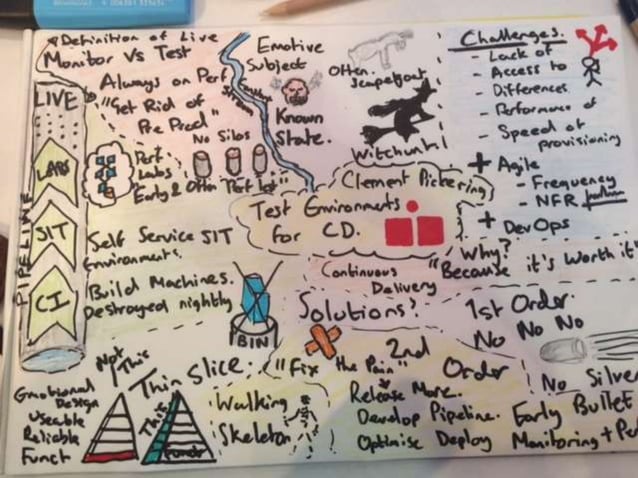 Definition of Live
Monitor Vs Test
Always on Perf
"Get Rid of
Pre Prod"
No Silos
Perf
Labs
Early & Often
"Perf Lot"
LIVE
LABS
SIT
CI
PIPELINE
Self Service SIT
Environments.
Build Machines.
Destroyed nightly
BIN
Emotive
Subject
Known
State.
Often
Scapegoat
Witchunt!
Clement Pickering
Test Environments
for CD.
Continuous
Delivery
Challenges.
- Lack of
- Access to
- Differences
- Performance of
- Speed of
provisioning
+ Agile
- Frequency
- NFR
+ DevOps
"Why?
Because it's Worth it"
Solutions?
1st Order
No No No
No Silver
Bullet
"Fix the Pain"
2nd
Order
Release More.
Develop Pipeline.
Optimise Deploy
Early
Monitoring +
Thin Slice:
Not
This
This
Emotional
Design
Useable
Reliable
Funct
Funct
Walking
Skeleton